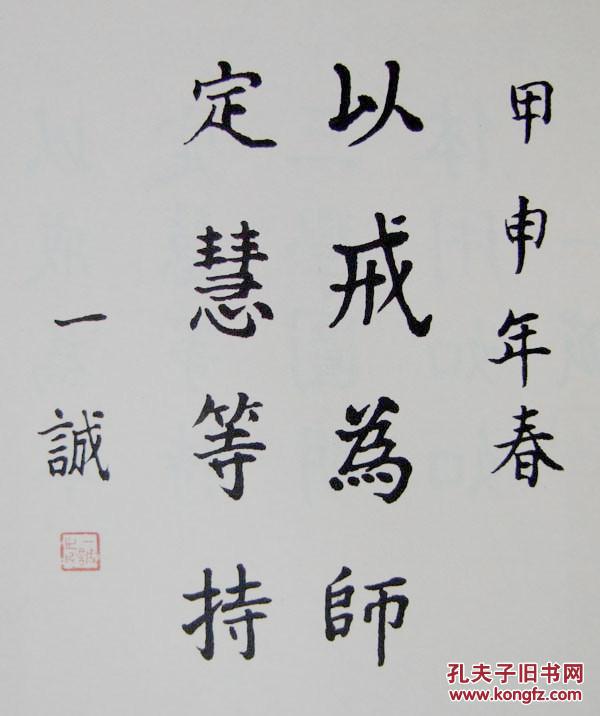 甲申年春
以戒為師
定慧等持
一誠
孔夫子旧书网
www.kongfz.com